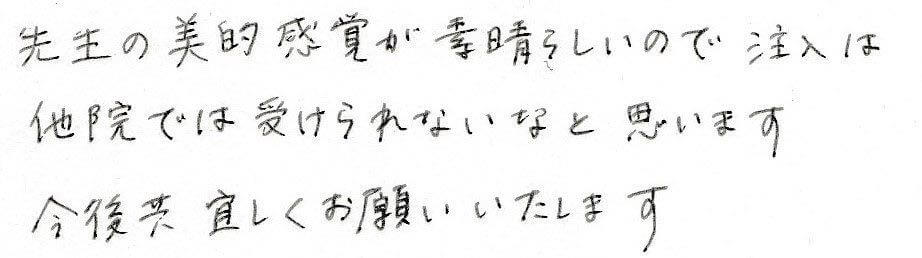 先生の美的感覚が素晴らしいので 注入は
他院では受けられないなと 思います
今後共 宜しくお願いいたします